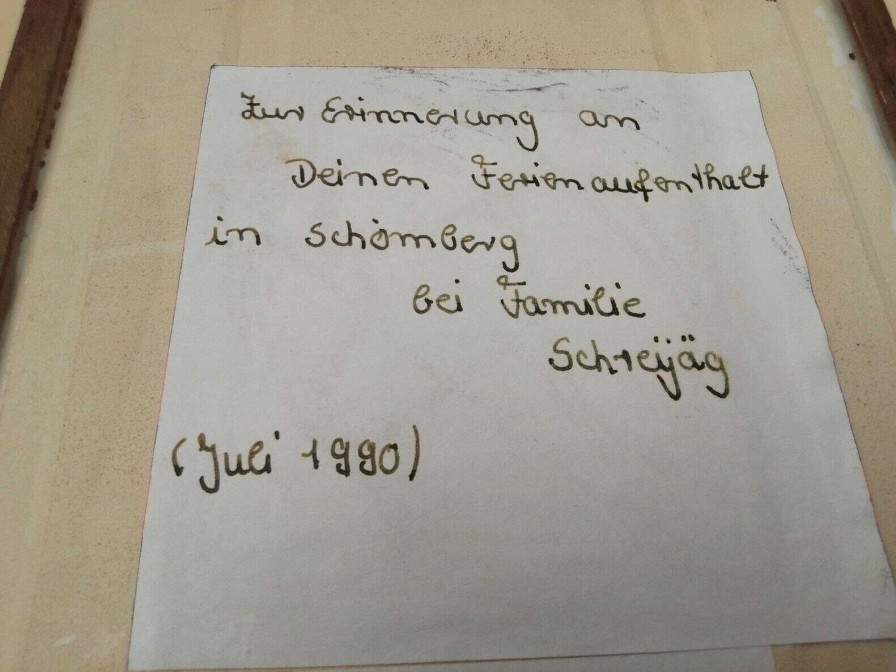 Zur Erinnerung an
Deinen Ferienaufenthalt
in Schömberg
bei Familie
Schreijäg
(Juli 1990)